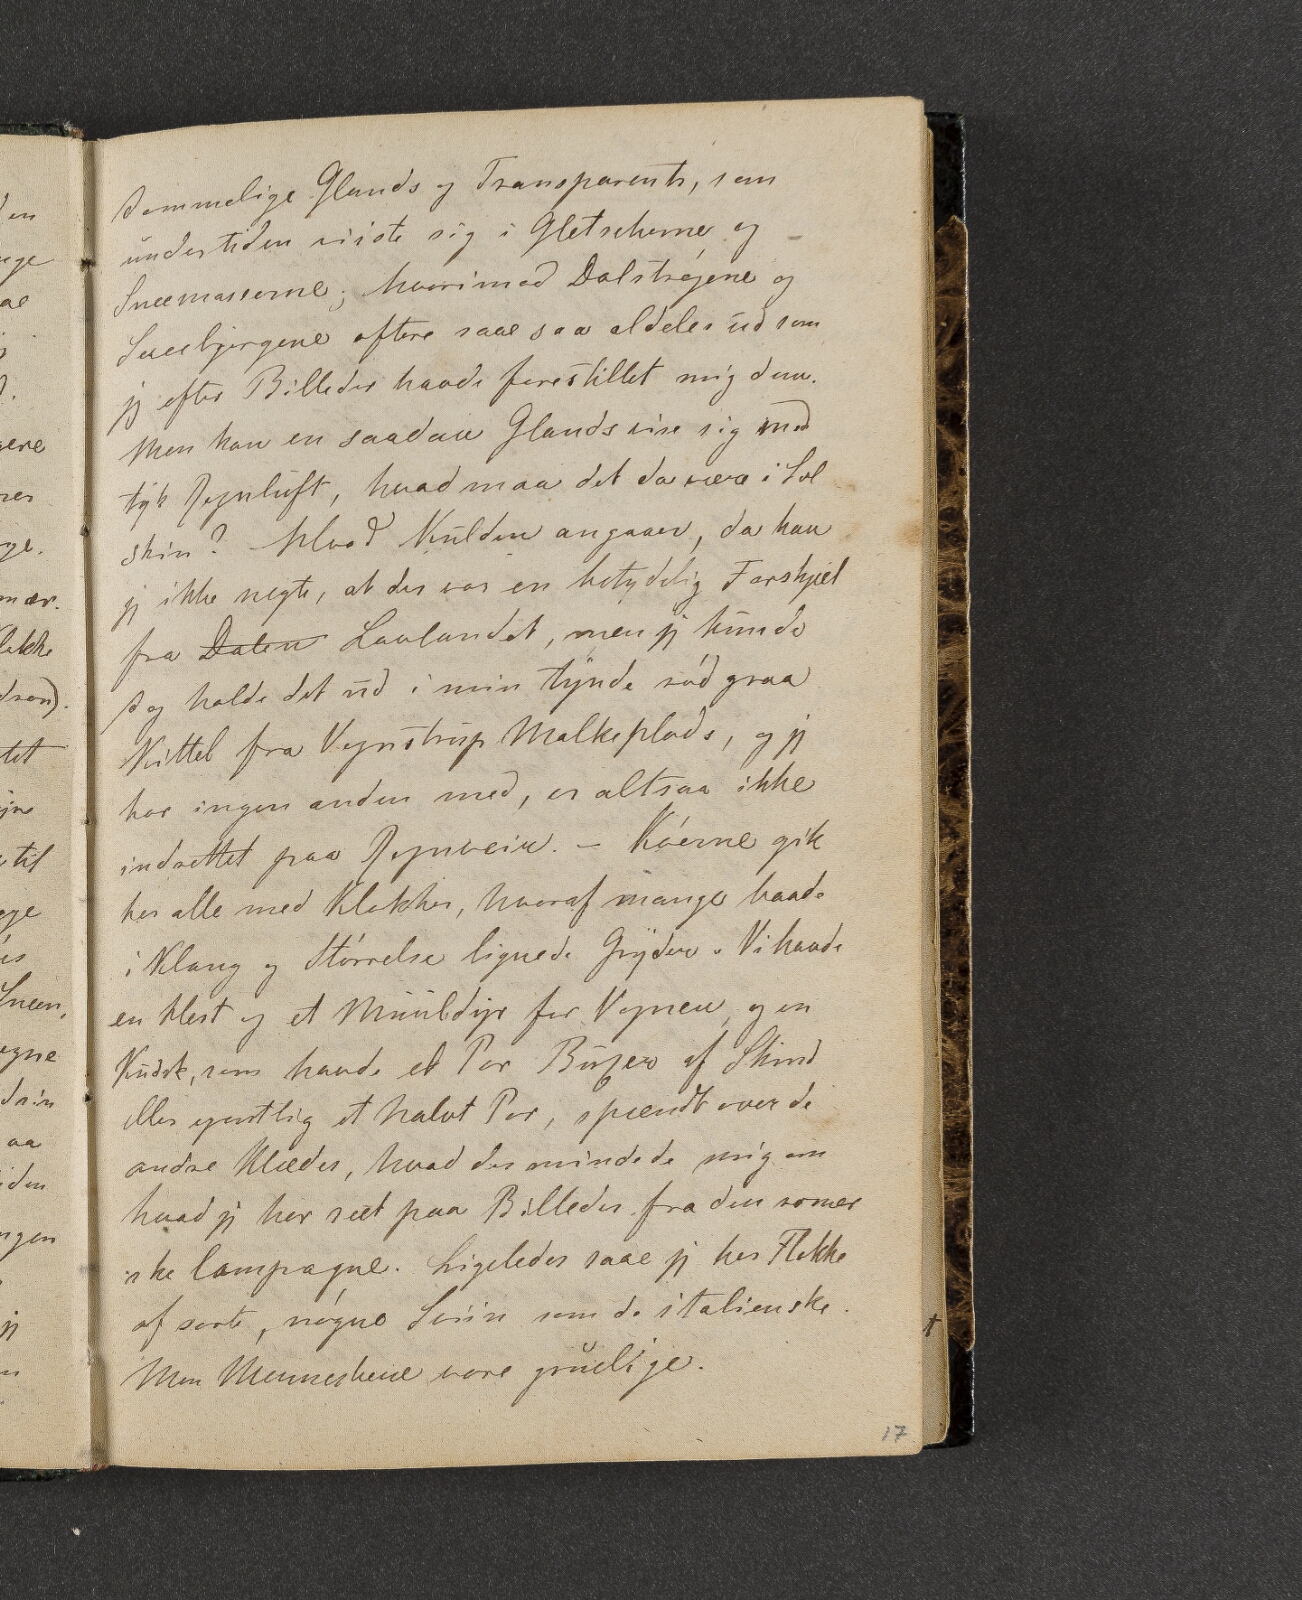 demmelige Glands og Transparents, som
undertiden viiste sig i Gletscherne og
Sneemasserne; hvorimod Dalstrøgene og
Sneebjergene oftere saae saa aldeles ud som
jeg efter Billeder havde forestillet mig dem.
Men kan en saadan Glands vise sig med
tyk Regnluft, hvad maa det da være i Sol
skin? Hvad Kulden angaaer, da kan
jeg ikke negte, at der var en betydelig Forskjel
fra Dalen Lavlandet, men jeg kunde
dog holde det ud i min tynde rødgraa
Kittel fra Vognstrup Malkeplads, og jeg
har ingen anden med, er altsaa ikke
indrettet paa Regnveir. – Køerne gik
her alle med Klokker, hvoraf mange baade
i Klang og Størrelse lignede Gryder. Vi havde
en Hest og et Muuldyr for Vognen, og en
Kudsk, som havde et Par Buxer af Skind
eller egentlig et halvt Par, spændt over de
andre Klæder, hvad der mindede mig om
hvad jeg har seet paa Billeder fra den romer
ske Campagne. Ligeledes saae jeg her Flokke
af sorte, nøgne Sviin som de italienske.
Men Menneskene vare gruelige.
17